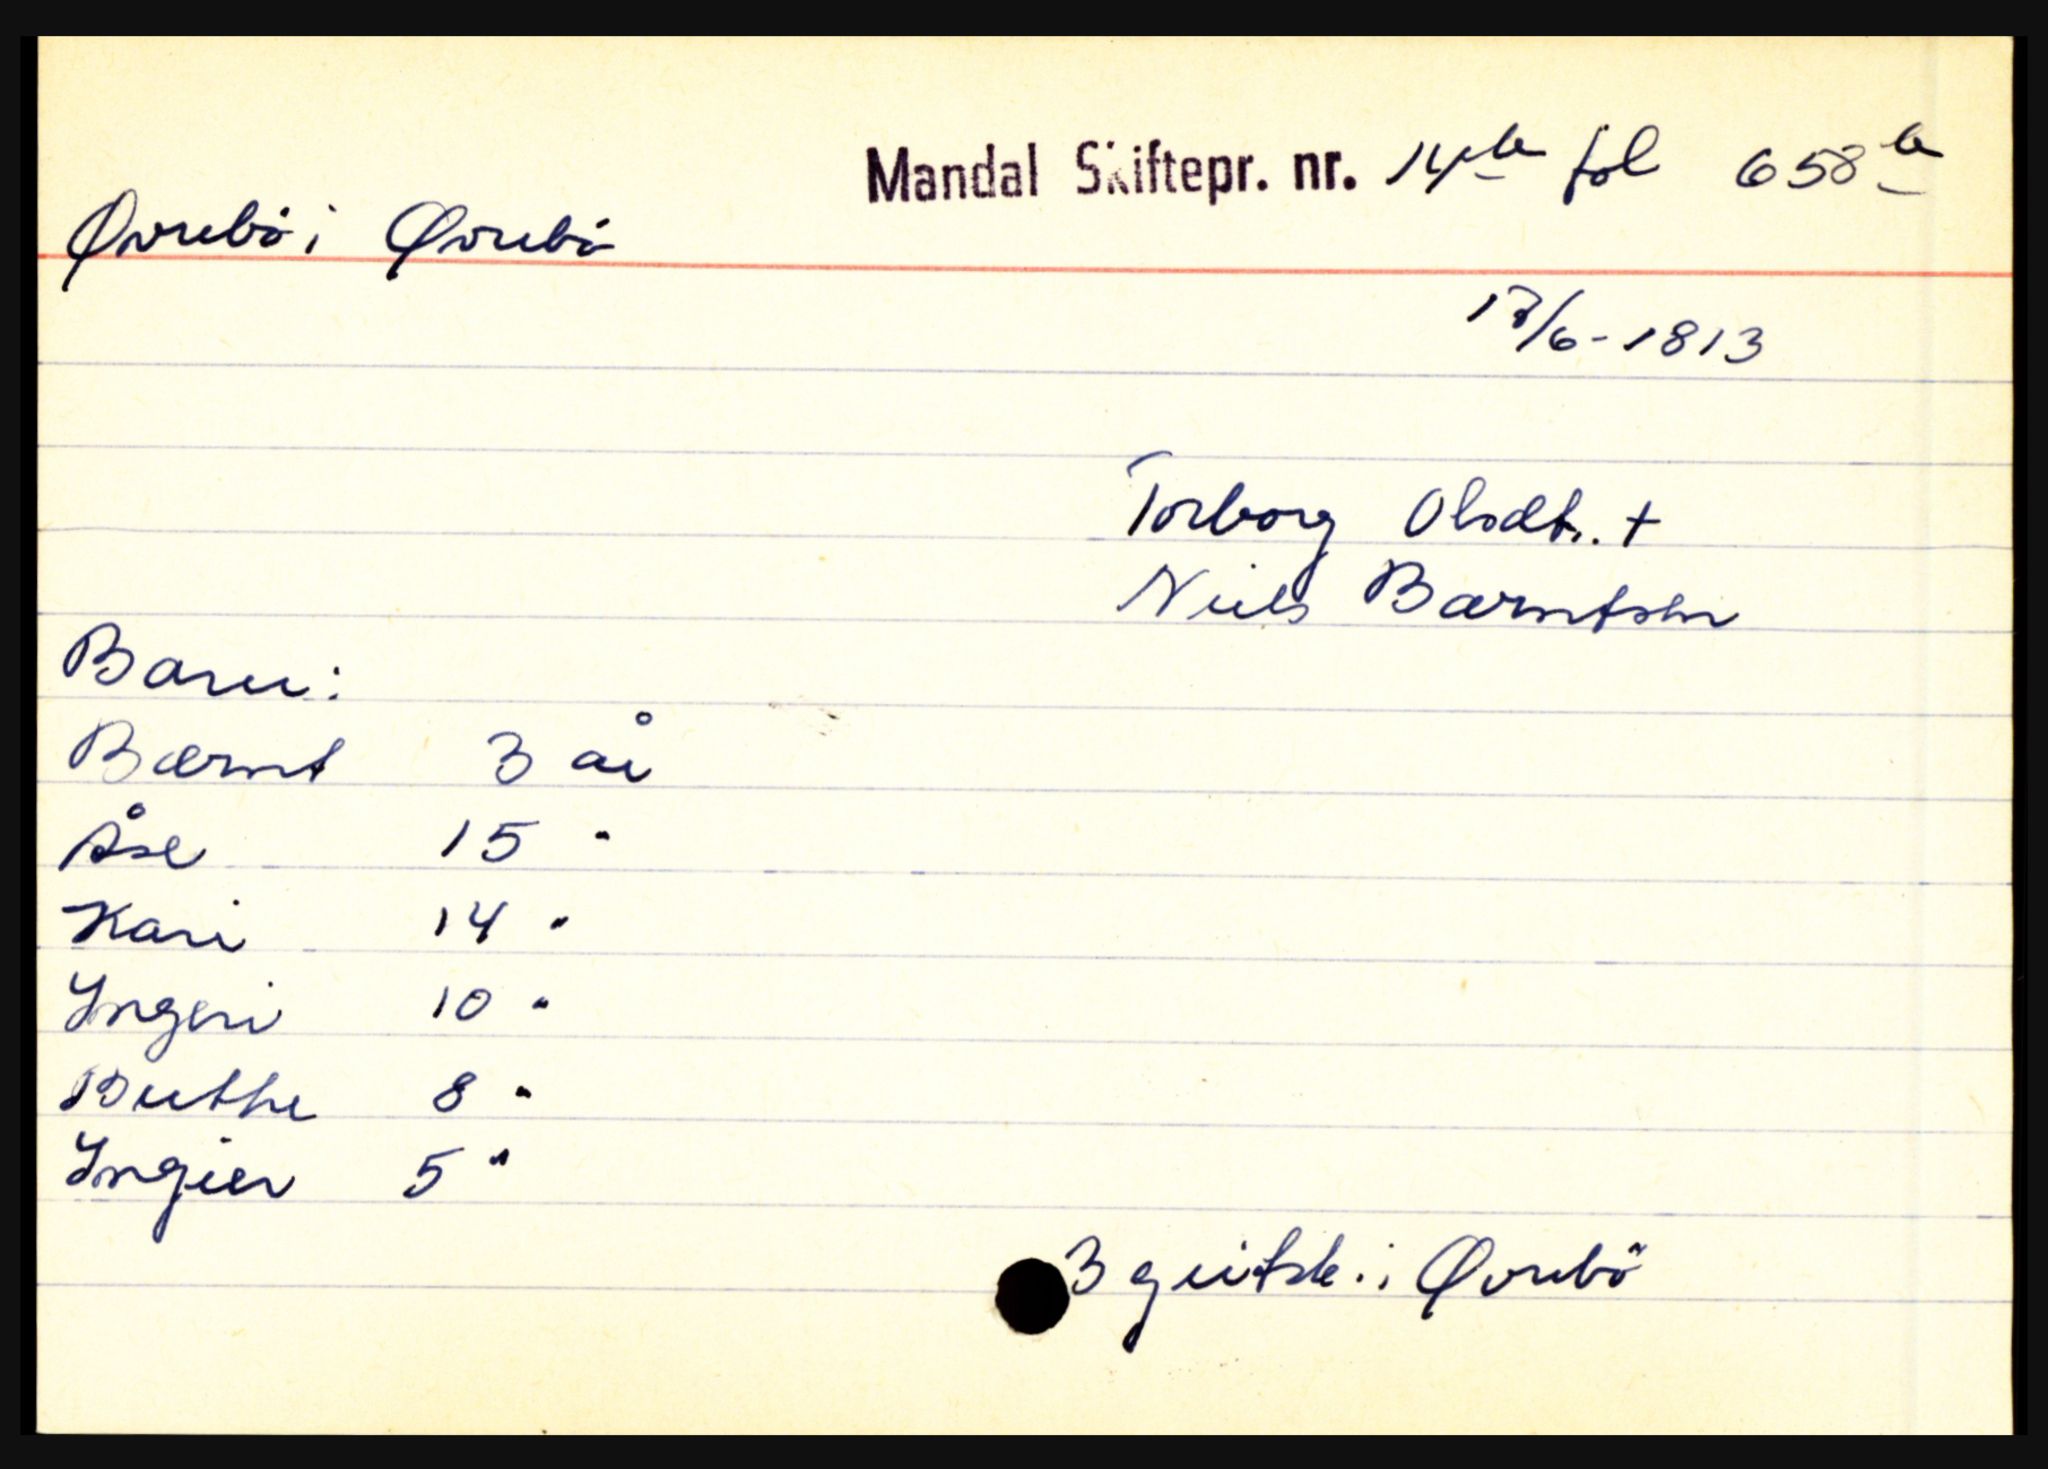 Mandal Skiftepr. nr. 14b fol 658b
Øvrebö i Øvrebö
17/6-1813
Torborg Olsdtr. +
Niels Bærntsen
Barn:
Bærnt 3 år
Åse 15 "
Kari 14 "
Yngeri 10 "
Birthe 8 "
Yngier 5 "
3 geitsk. i Øvrebö